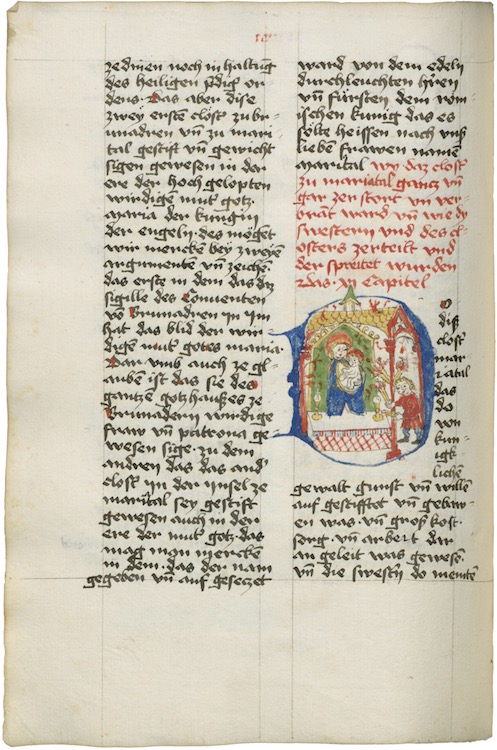 zedinen noch in haltūg
des heiligen p̄dig or-
dens. Das aber dise
zwey erstē clost̄ zu br-
unadren vn̄ zu mari
tal gestift vn̄ gewicht
sigen gewesen in der
ere der hoch gelopten
wirdigē mut̄ gotz.
maria der kungin
der engeln. des mōget
wir mercken bey zweyē
argumentē vn̄ zeichē.
das erste in dem das daz
sigille des Conuenten
vō Brunadrēn in im
hat das bild der wir-
digē mut̄ gotes maria.
Dar vmb auch ze gl-
auben ist das sie des
gantzē gotzhaußes ze
Brunadern wirdige
fraw vn̄ patrona ge
wesen sige. zu dem
andren das das and̄
clost̄ in der jnsel ze
marital sey gestift
gewesen auch in der
ere der mut̄ gotz. das
mag man mercken
in dem. das der nam
gegeben vn̄ auf gesetzet
ward von dem edeln
durchleuchten h̄ren
vn̄ fürsten dem rom-
ischen kunig das es
sölte heissen nach vnß
lieben frawen namē
marital wy daz clost̄
zu mariatal gantz vn̄
gar zerstort vn̄ ver-
brāt ward vn̄ wie dy
swestern vnd des cl-
osters zerteilt vnd
der spreitet wurden
das xi capitel
O
diß
clost̄
mar
iatal
das
do
von
kun-
igk-
lichen
gewalt gunst vn̄ willē
auf gestifftet vn̄ gebaw-
en was. vn̄ groß kost.
sorg. vn̄ arbeit dar
an geleit was gewesē.
vn̄ die swest̄n do meintē